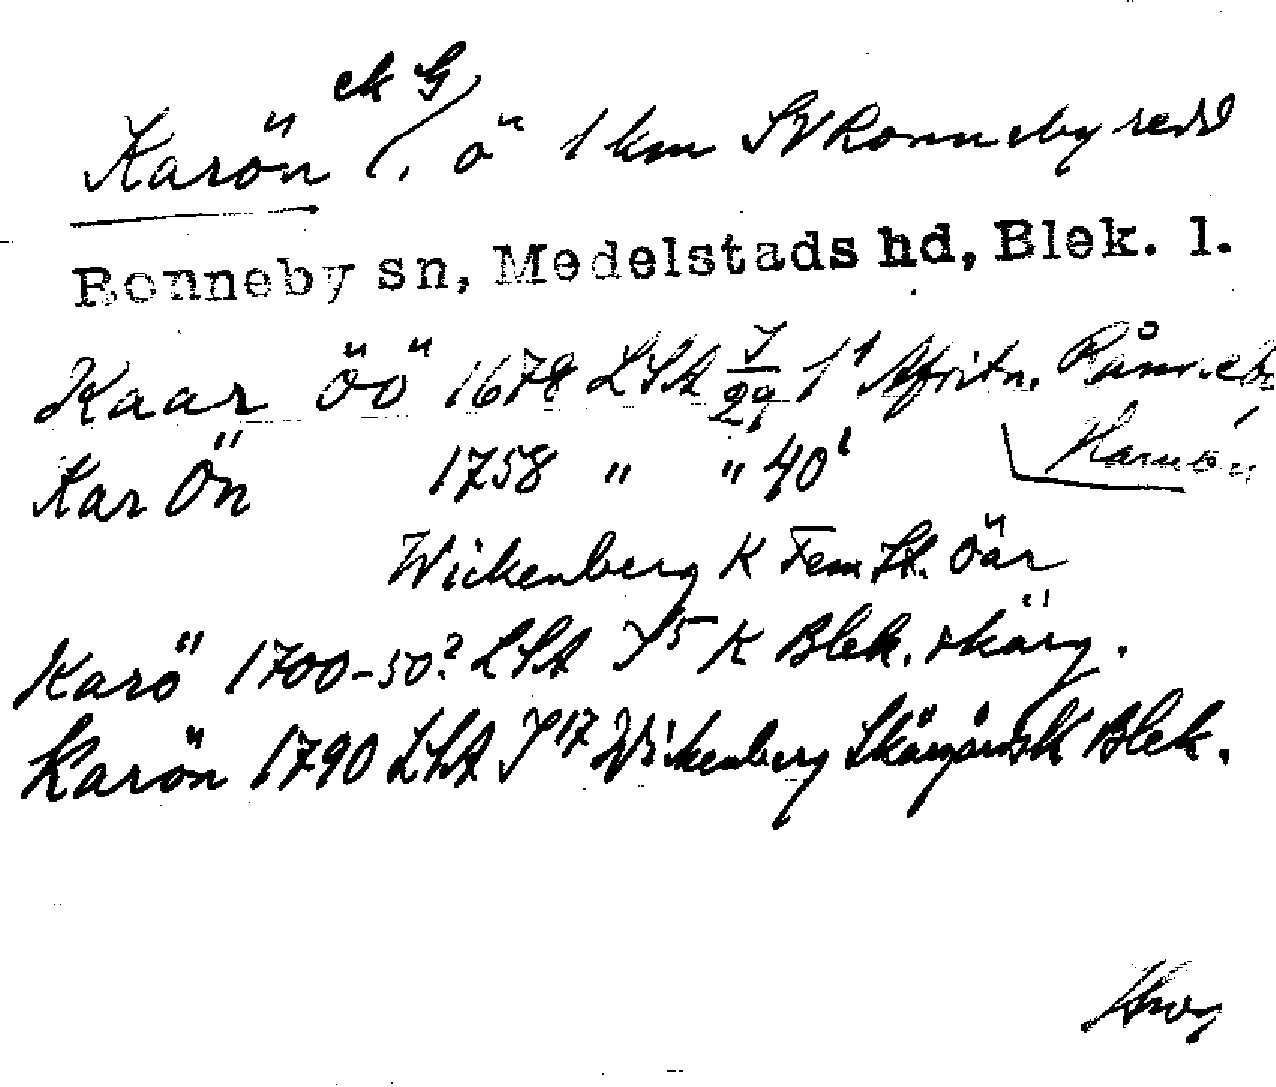 ek G
Karön (, ö 1 km SV Ronneby redd
Ronneby sn, Medelstads hd, Blek. l.
Kaar Öö 1678 LSA J/29 1¹ Afritn. Rånneby
Hamnen
Kar Ön 1758 " " 40¹
Wickenberg K Fem St. öar
Karö 1700-50? LSA J5 K Blek. skärg.
Karön 1790 LSA J17 Wickenberg Skärgårds K Blek.